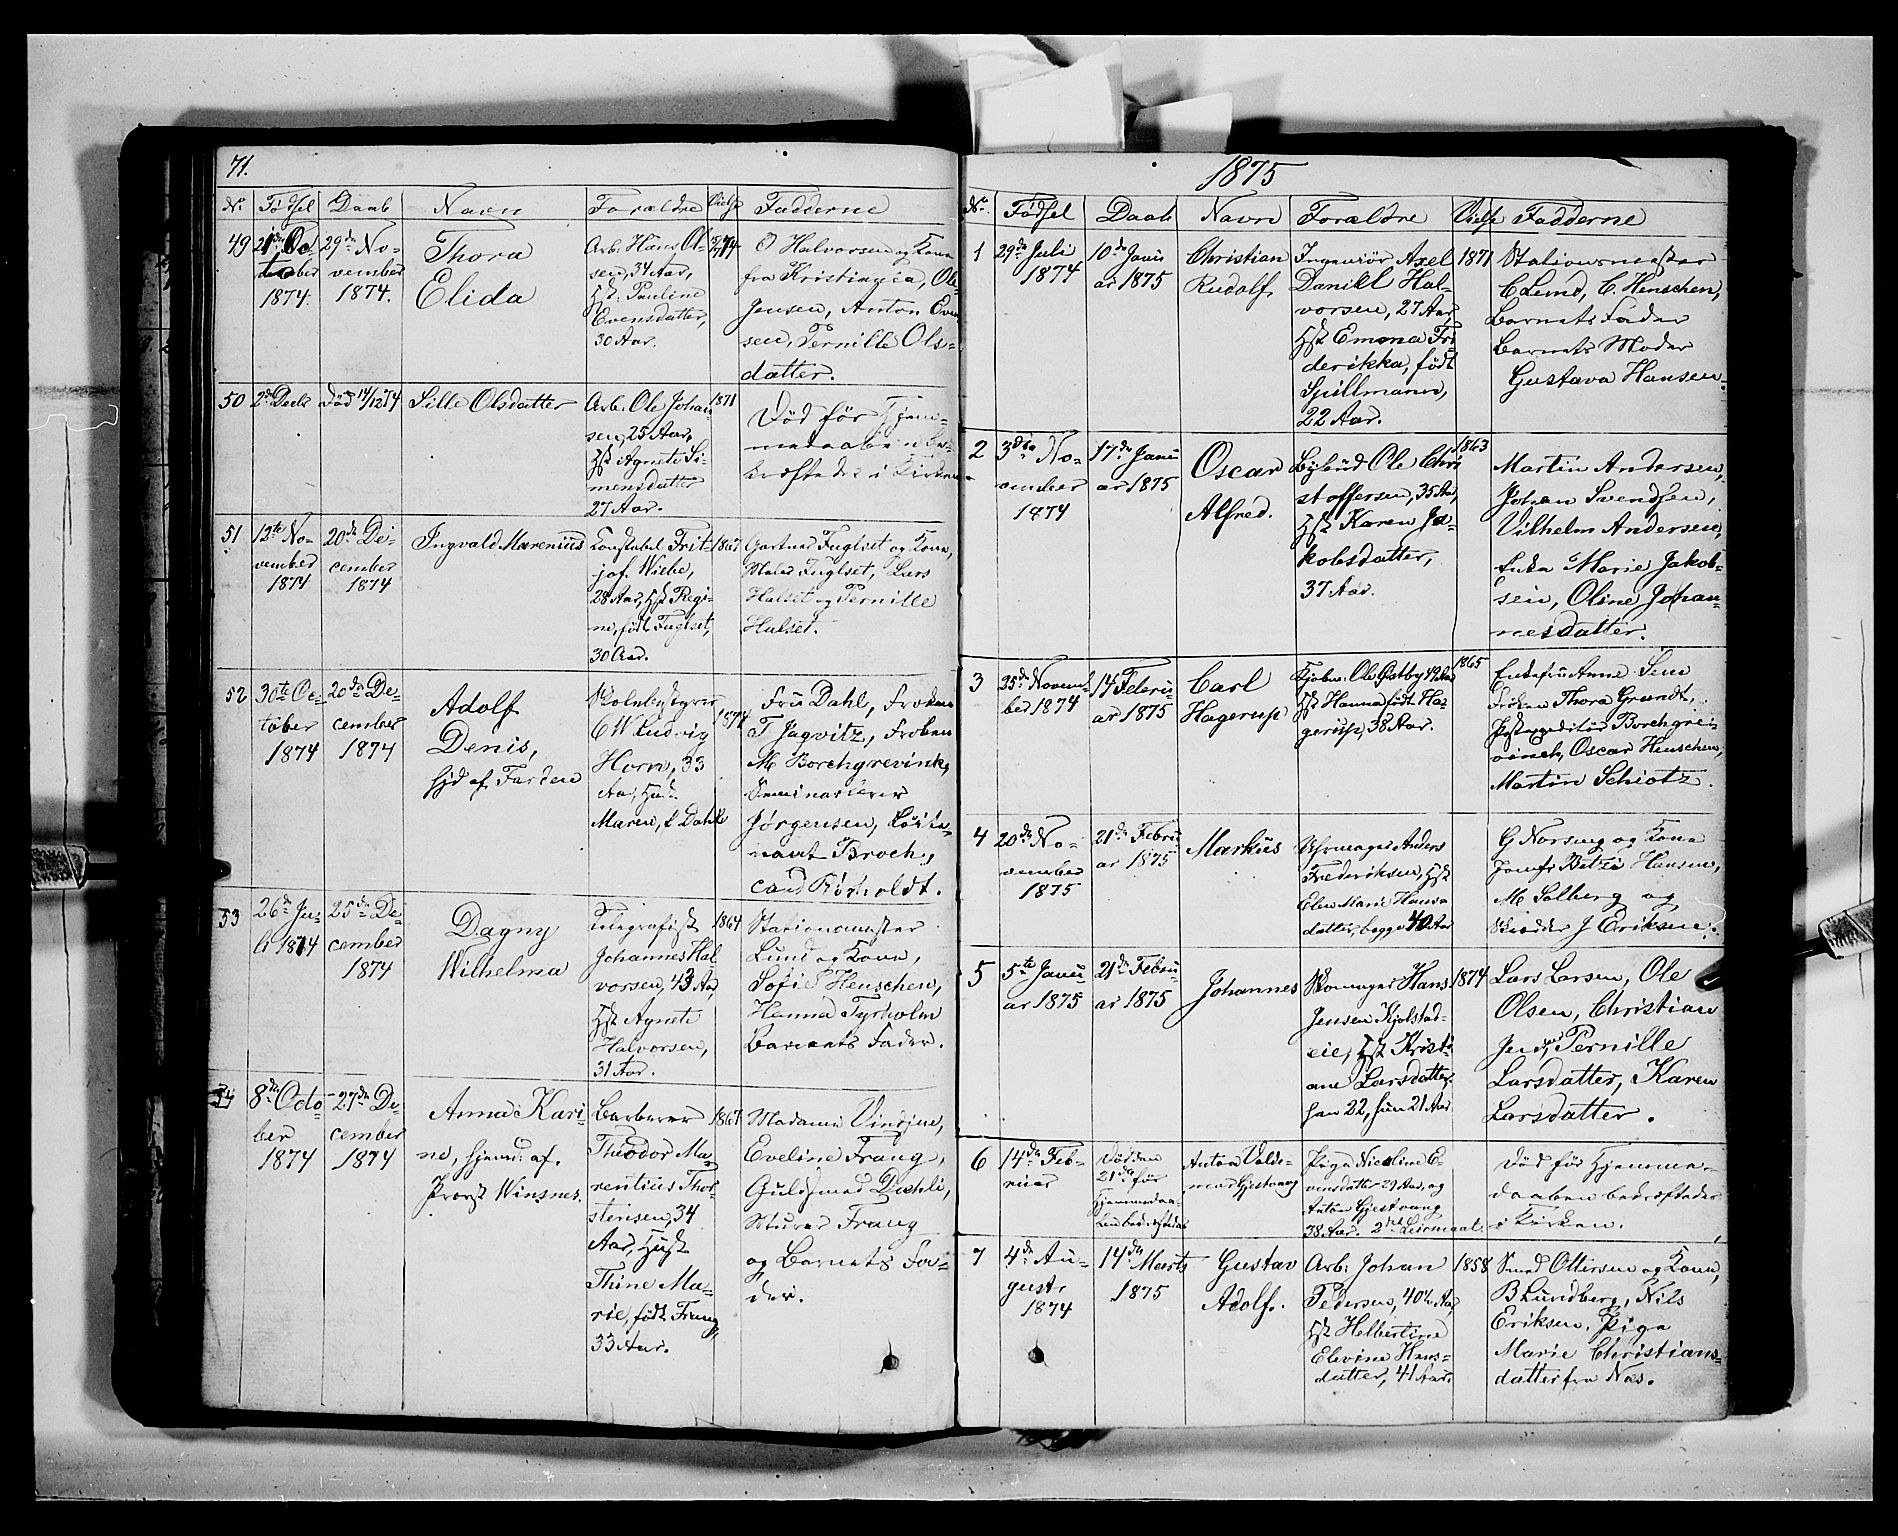 71.
No Fødsel Daab Navn Forældre Vielse Fadderne
49 21de Oc-
tober
1874.
29de No-
vember
1874.
Thora
Elida
Arb. Hans Ol-
sen, 34 Aar,
Hst. Pauline
Evensdatter,
30 Aar.
O Halvorsen og Kone
fra Kristiania, Ole
Jensen, Anton Even-
sen, Pernille Ols-
datter.
50 2de Decb
Død 14/12 74
Sille Olsdatter
Arb. Ole Johan
sen, 25 Aar,
Hst Agnete Si-
mensdatter
27 Aar.
1871
Død før Hjem-
medaaben be-
kræftedes i Kirken
51 12te No-
vember
1874
20de De-
cember
1874
Ingvald Marenius
Konstabel Frit-
jof Wiebe,
28 Aar, Hst Regi-
ne, født Fuglset,
30 Aar.
1867
Gartner Fuglset og Kone,
Maler Fuglset, Lars
Halset og Pernille
Halset.
52 30te Oc-
tober
1874
20de De-
cember
1874
Adolf
Denis,
hjd af Farden
Skolebestyrer
C W Ludvig
Horn, 33
Aar,
Maren, f. Dahl
1874
Fru Dahl, Frøken
T Jagvitz, Frøken
M Borchgrevink,
Seminarlærer
Jørgensen, Løite-
nant Broch,
cand Rørholdt.
53 26de Ju-
li 1874
25de De-
cember
1874
Dagny
Wilhelma
Telegrafist
Johannes Hal
vorsen, 43 Aar,
Hst Agnete
Halvorsen,
31 Aar.
1864
Stationsmester
Lund og Kone,
Sofie Henschen,
Hanna Tyrholm
Barnets Fader.
54 8de Octo-
ber
1874
27de De-
cember
1874
Anna Kari-
ne, hjemd. af.
Provst Winsnes.
Barberer
Theodor Ma-
rentius Thor-
stensen, 34
Aar, Hust
Thine Ma-
rie, født Frang
33 Aar.
1867
Madame Vindju,
Eveline Frang,
Guldsmed Diehli,
Murer Frang
og Barnets Fa-
der.
1875
No Fødsel Daab Navn Forældre Vielse Fadderne
1 29de Juli
1874
10de Janu
ar 1875
Christian
Rudolf
Ingeniør Axel
Daniel Hal-
vorsen, 27 Aar,
Hst Emma Fri
derikka, født
Spillmann,
22 Aar.
1871
Stationsmester
C Lund, C. Henschen,
Barnets Fader
Barnets Moder
Gustava Hansen.
2 3die No-
vember
1874
17de Janu
ar 1875
Oscar
Alfred.
Bybud Ole Chri
stoffersen, 35 Aar,
Hst Karen Ja-
kobsdatter,
37 Aar.
1863
Martin Andersen,
Johan Svendsen,
Vilhelm Andersen,
Enke Marie Jakob-
sen, Oline Johan-
nesdatter.
3 25de Novem-
ber 1874
14 Febru
ar 1875
Carl
Hagerup
Kjøbm. Ole Østby 42 Aar
Hst Hanna født Ha-
gerup, 38 Aar.
1865
Enkefru Anne Sem
Frøken Thora Grundt,
Postexpeditør Borchgre-
vinck, Oscar Henschen,
Martin Schiøtz.
4 20de No-
vember
1875
21de Febru
ar 1875
Markus
Uhrmager Anders
Frederiksen, Hst
Elen Marie Hans-
datter, begge 40 Aar
G Norseng og Kone
Jomfr Betzi Hansen,
M Solberg og
J Eriksen.
5 5te Janu
ar 1875
21de Febru
ar 1875
Johannes
Skomager Hans
Jensen Kjølstad-
eie, Hst Kristi
ane Larsdatter
han 22, hun 21 Aar
1874
Lars Larsen, Ole
Olsen, Christian
Jensen, Pernille
Larsdatter, Karen
Larsdatter.
6 14de Feb-
ruar
Død den
21de før
Hjemmedaa-
ben bekræftedes
Anton Valde-
mar Gjestvang
Pige Nicoline E-
vensdatter 29 Aar, og
Anton Gjestvang
38 Aar. 2det Leiermaal.
Død før Hjemme-
daaben bekræftedes
i Kirken.
7 4de Au-
gust
1874
14de Marts
1875
Gustav
Adolf.
Arb. Johan
Pedersen, 40½ Aar
Hst Helbertine
Elevine Hans-
datter, 41 Aar.
1858
Smed Ottersen og Kone,
B Lundberg, Nils
Eriksen. Pige
Marie Christians-
datter fra Næs.